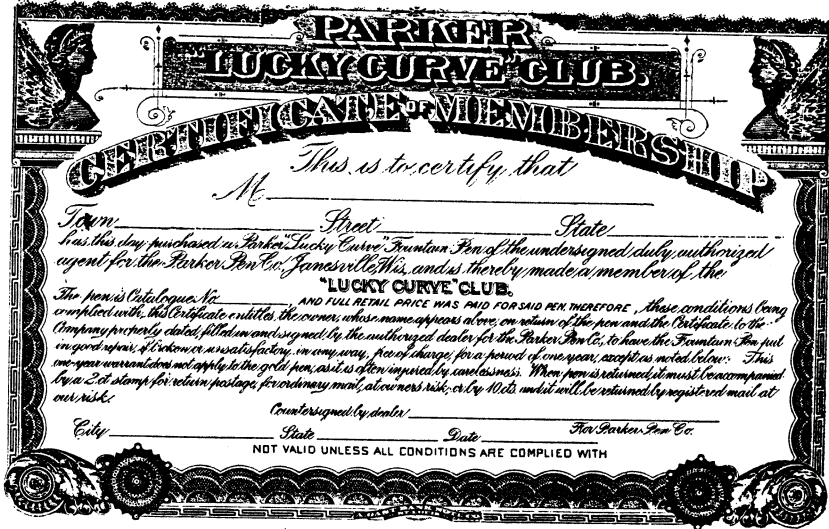 PARKER
"LUCKY CURVE" CLUB.
CERTIFICATE OF MEMBERSHIP
This is to certify that
M
Town Street State
has this day purchased a Parker "Lucky Curve" Fountain Pen of the undersigned duly authorized
agent for the Parker Pen Co. Janesville, Wis, and is thereby made a member of the
"LUCKY CURVE" CLUB.
The pen is Catalogue No. , AND FULL RETAIL PRICE WAS PAID FOR SAID PEN, THEREFORE, these conditions being
complied with, this Certificate entitles the owner, whose name appears above, on return of the pen and the Certificate to the
Company properly dated, filled in and signed by the authorized dealer for the Parker Pen Co, to have the Fountain Pen put
in good repair, if broken or unsatisfactory in any way, free of charge, for a period of one year, except as noted below: This
one-year warrant does not apply to the gold pen, as it is often injured by carelessness. When pen is returned, it must be accompanied
by a 2ct stamp for return postage, for ordinary mail, at owners risk, or by 10 cts. and it will be returned by registered mail at
our risk.
Countersigned by dealer
City State Date For Parker Pen Co.
NOT VALID UNLESS ALL CONDITIONS ARE COMPLIED WITH